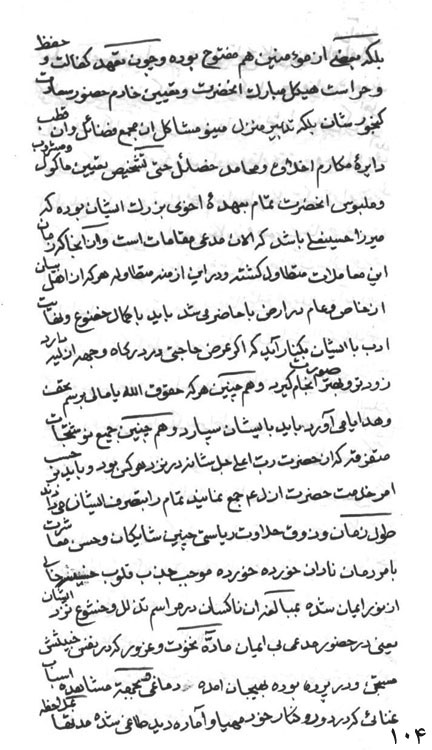 بلکه بعضی از مؤمنین هم مفتوح بوده و چون تعهد کفالت و حفظ
و حراست هیکل مبارک آنحضرت و تعیین خادم حضور
بلکه تدبیر منزل مینو مشاکل آن مجمع فضائل و آن قطب
دایرهٔ مکارم اخلاق و محامد خصائل حتی تشخیص و تعیین ماکول و مشروب
و ملبوس آنحضرت تمام بعهدهٔ اخوی بزرگ ایشان بوده که
میرزا حسینعلی باشد که الان مدعی مقامات است و از آنجا که زمان
این معاملات متطاول گشته و در این ازمنه متطاوله هر که از اهل بیان
از خاص و عام در ارض با حاضر می شد باید با کمال خضوع و
ادب با ایشان بکنار آید که اگر عرض حاجتی در درگاه و جبهه ان لیه دارد
زودتر و بهتر صورت انجام گیرد و همچنین هر که حقوق الله یا مالی برسم تحف
و هدایا می آورد باید بایشان سپارد و همچنین جمع نوشتجات
متفرقه که از حضرت رب اعلی جل شانه در نزد هر کس بود و باید بر حسب
امر خدمت حضرت ازل جمع نمایند تمام را بتصرف ایشان می دادند
طول زمان و ذوق حلاوت ریاستی چنین شایگان و حسن معاشرت
با مردمان نادان خورده خورده موجب جذب قلوب
از نور ایمان شده بمبالغه آن ناکسان در مراسم تذلل و خشوع نزد ایشان
یعنی در حضور مدعی بی ایمان مادّه نخوت و غرور که در نفس خبیثش
و در پرده بوده بهیجان آمده دماغی مشاهده اسباب
غنائی کرد در دور و کنار خود مهیا و آماده دید طاغی شده
۱۰۴